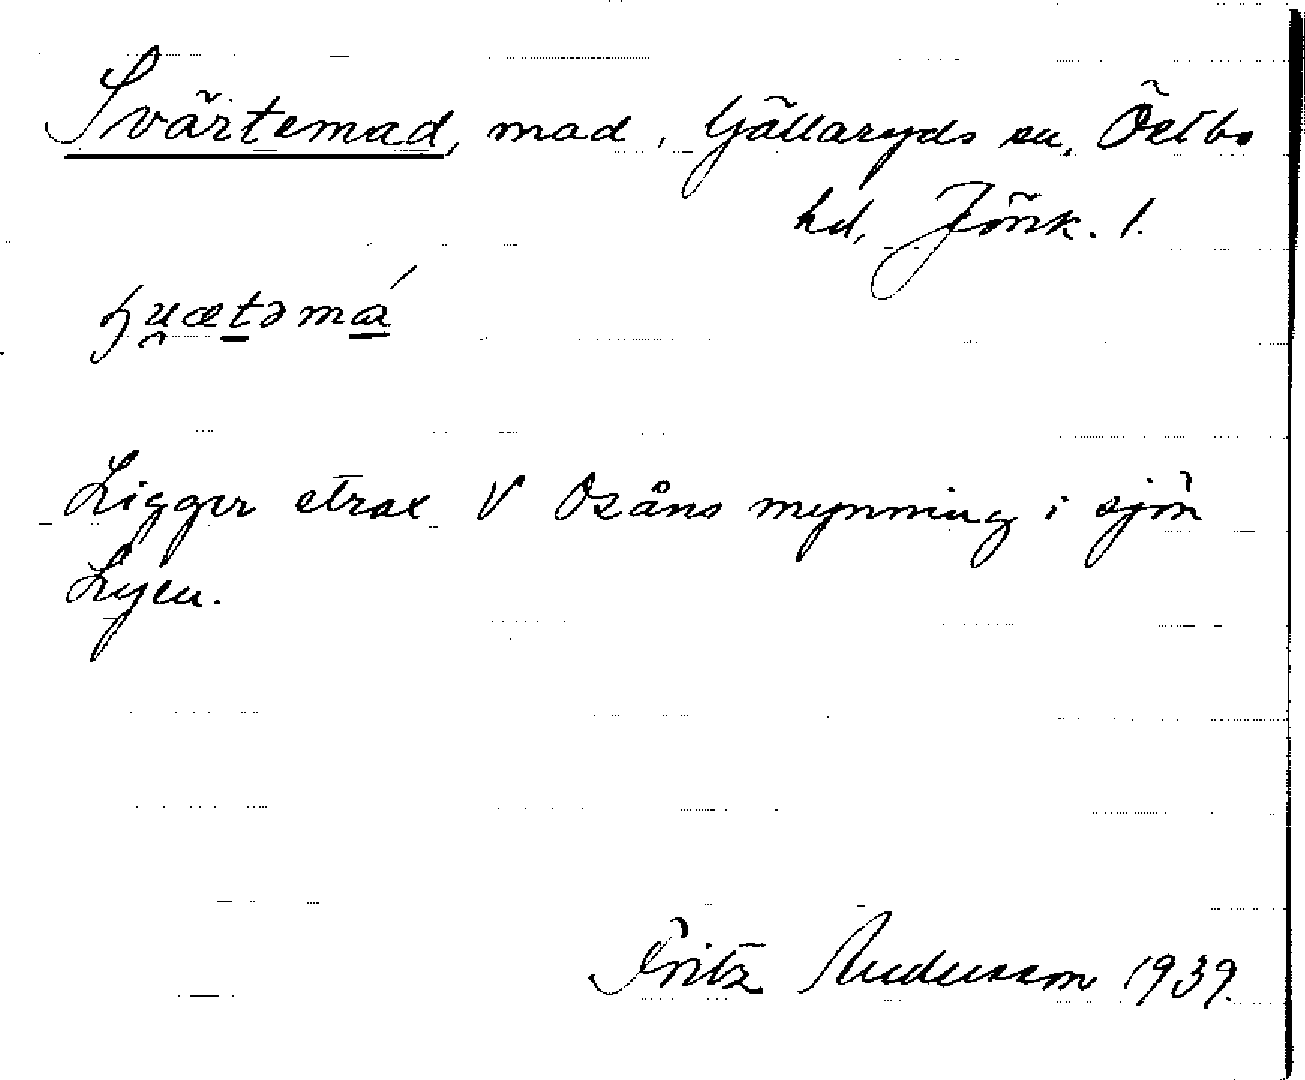 Svärtemad, mad, Gällaryds sn. Östbo
hd, Jönk. l.
Ligger strax V Osåns mynning i sjön
Lyen.
Fritz Andersson 1939.